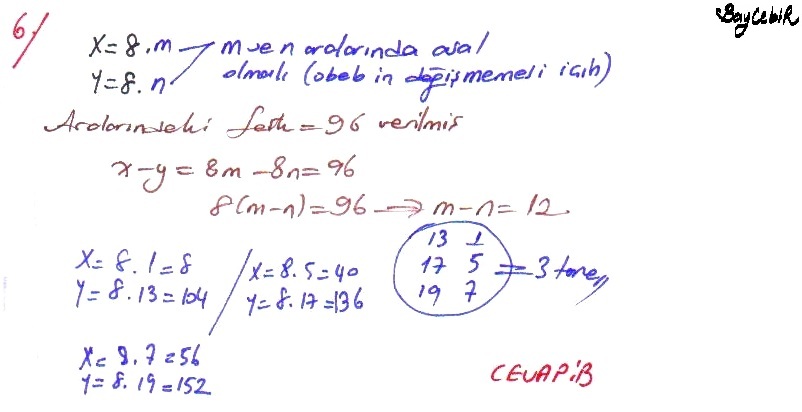 BayCebiR
6/
X=8.m
Y=8.n
m ve n aralarında asal
olmalı (obeb in değişmemesi için)
Aralarındaki fark=96 verilmiş
x-y=8m-8n=96
8(m-n)=96 → m-n=12
13 1
17 5
19 7
=3 tane,,
X=8.1=8
Y=8.13=104
X=8.5=40
Y=8.17=136
X=8.7=56
Y=8.19=152
CEVAP:B